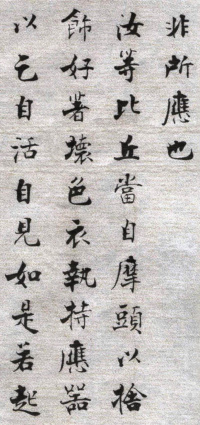 非所應也
汝等比丘當自摩頭以捨
飾好著壞色衣執持應器
以乞自活自見如是若起